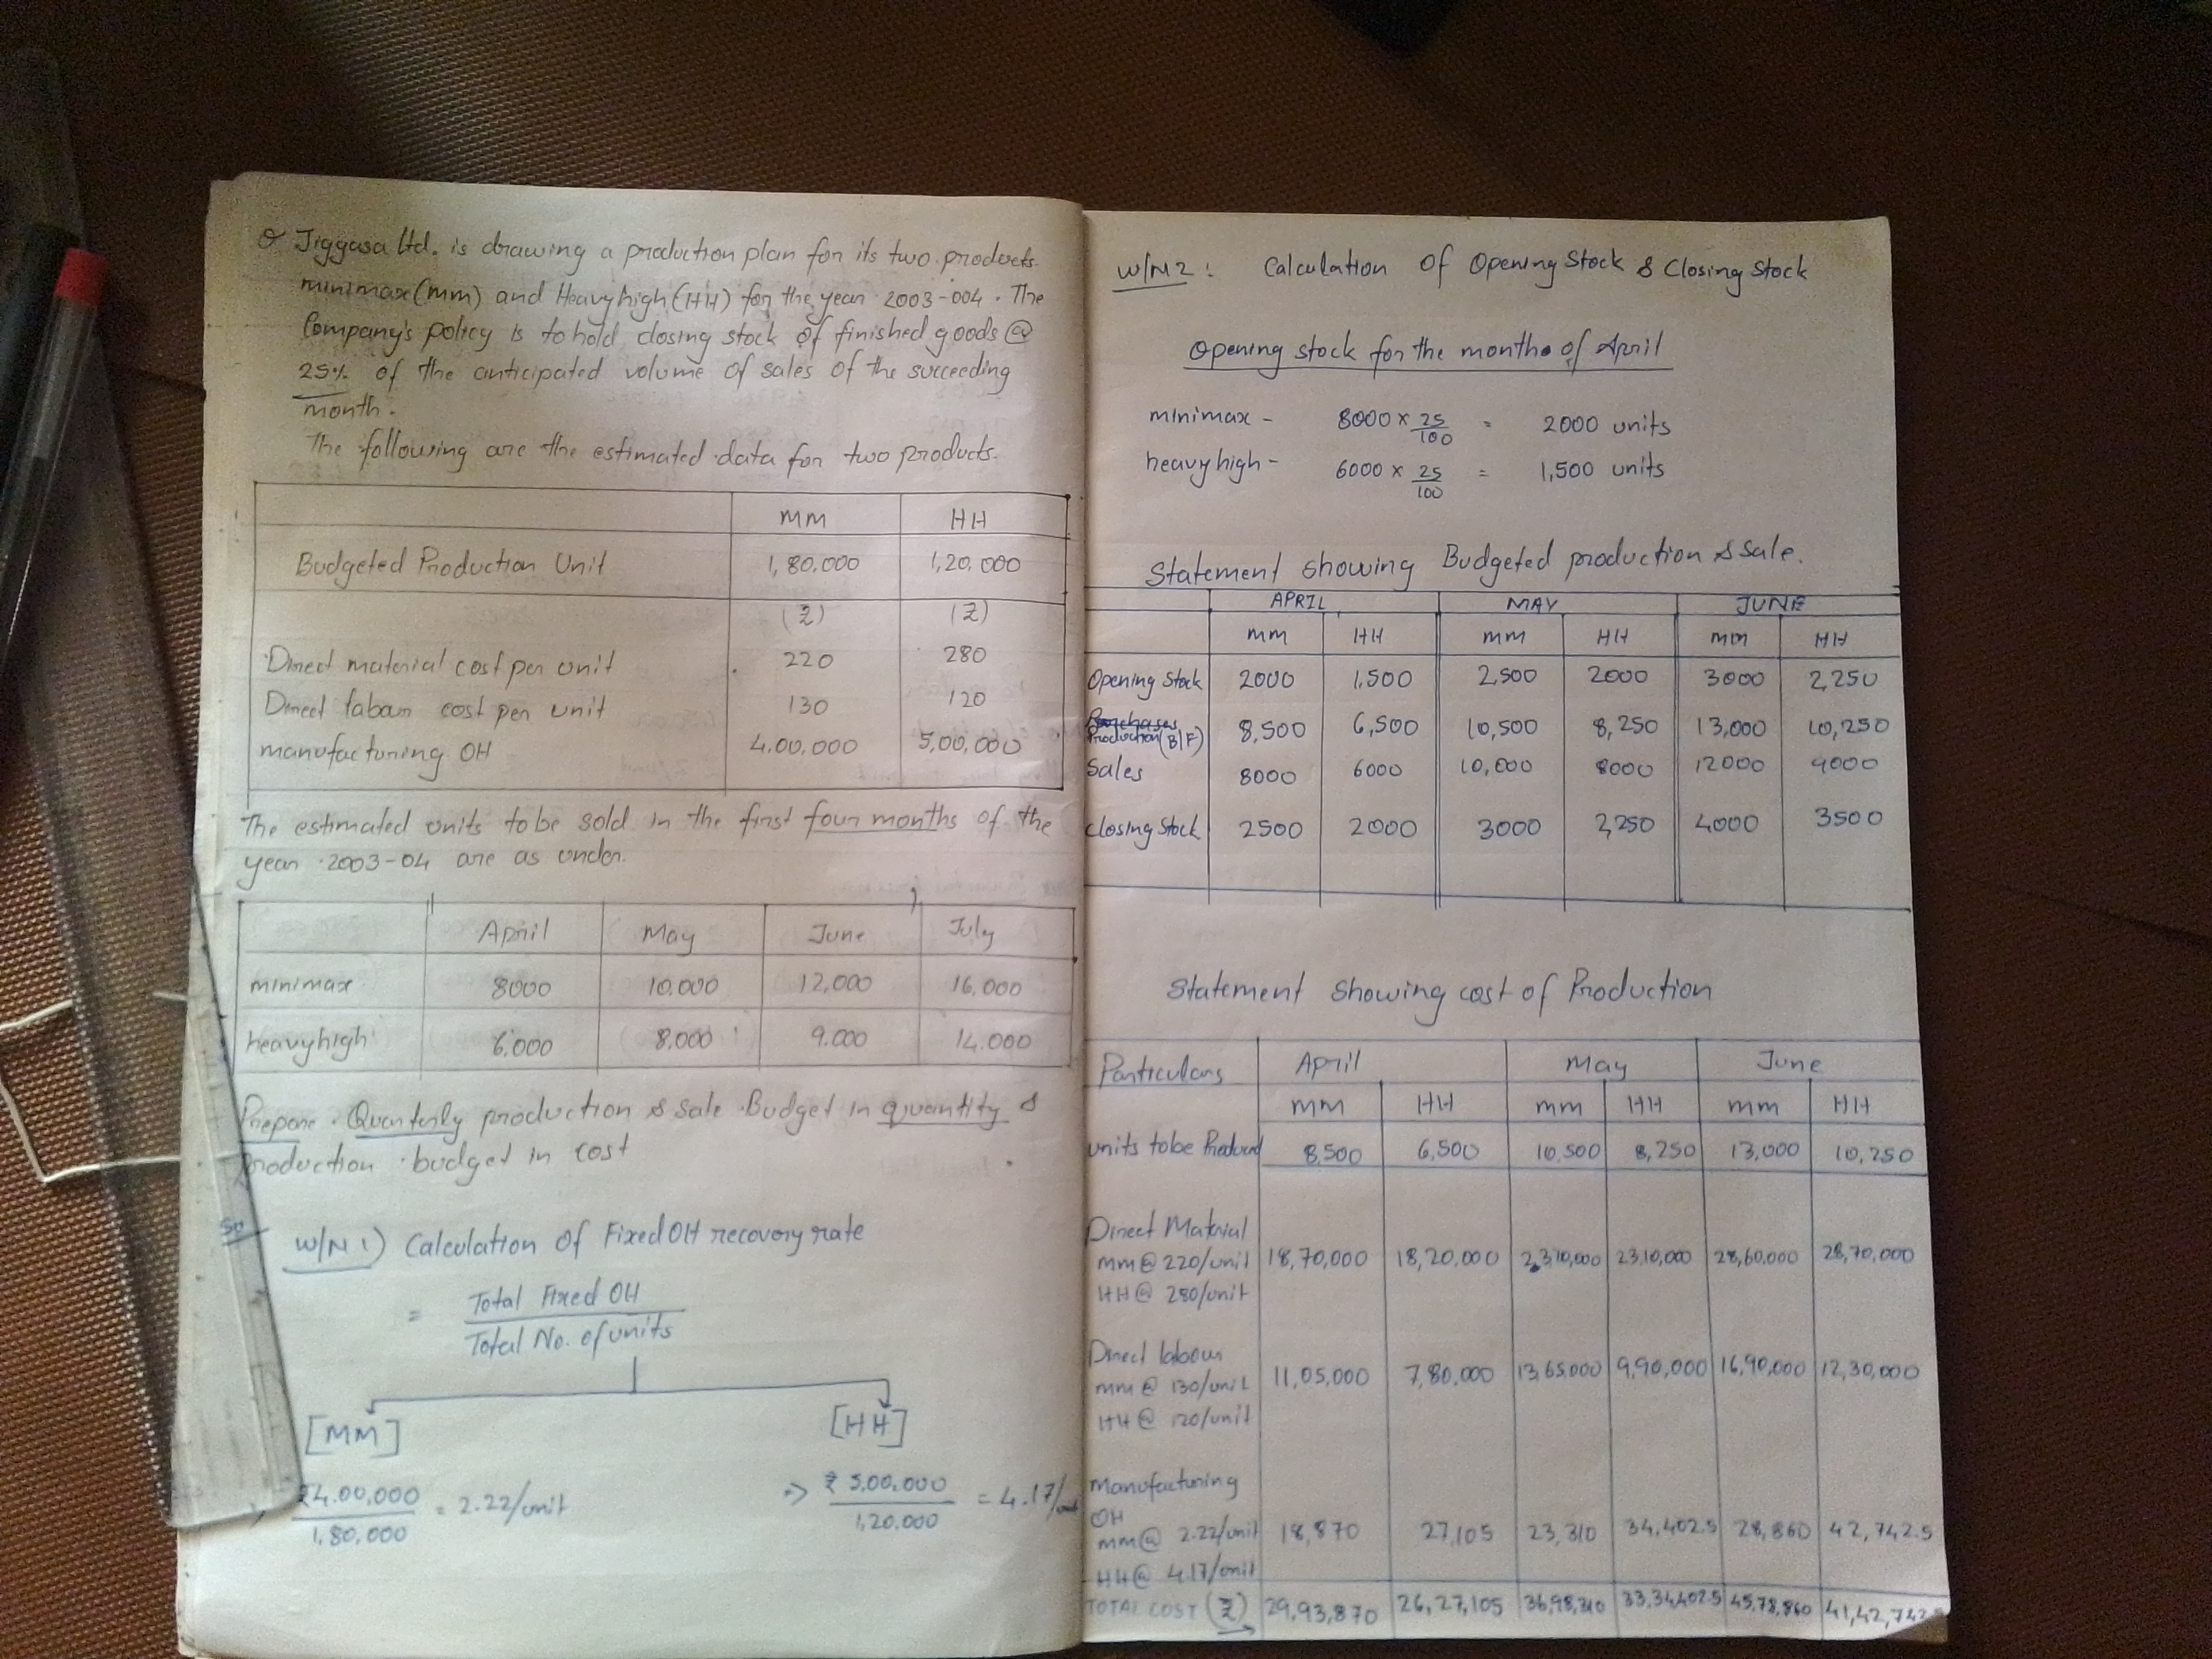 Q Jiggasa Ltd. is drawing a production plan for its two products
minimax(mm) and Heavyhigh(HH) for the year 2003-004. The
Company's policy is to hold closing stock of finished goods @
25% of the anticipated volume of sales of the succeeding
month.
The following are the estimated data for two products.
MM HH
Budgeted Production Unit 1,80,000 1,20,000
(₹) (₹)
Direct material cost per unit 220 280
Direct labour cost per unit 130 120
manufacturing OH 4,00,000 5,00,000
The estimated units to be sold in the first four months of the
year 2003-04 are as under.
April May June July
minimax 8000 10,000 12,000 16,000
heavyhigh 6,000 8,000 9,000 14,000
Prepare Quarterly production & Sale Budget in quantity &
production budget in cost
W/N 1) Calculation of Fixed OH recovery rate
= Total Fixed OH
Total No. of units
[MM] [HH]
₹4,00,000 / 1,80,000 = 2.22/unit => ₹ 5,00,000 / 1,20,000 = 4.17/unit
W/N2: Calculation of Opening Stock & Closing Stock
Opening stock for the months of April
minimax - 8000 x 25/100 = 2000 units
heavyhigh - 6000 x 25/100 = 1,500 units
Statement showing Budgeted production & Sale.
APRIL MAY JUNE
mm HH mm HH mm HH
Opening Stock 2000 1,500 2,500 2000 3000 2,250
Purchases
Production (B/F) 8,500 6,500 10,500 8,250 13,000 10,250
Sales 8000 6000 10,000 8000 12000 9000
Closing Stock 2500 2000 3000 2,250 4000 3500
Statement Showing cost of Production
Particulars April May June
MM HH mm HH mm HH
units to be Produced 8,500 6,500 10,500 8,250 13,000 10,250
Direct Material
mm @ 220/unit 18,70,000 18,20,000 2,310,000 23,10,000 28,60,000 28,70,000
HH @ 280/unit
Direct labour
mm @ 130/unit 11,05,000 7,80,000 13,65,000 9,90,000 16,90,000 12,30,000
HH @ 120/unit
Manufacturing
OH
mm @ 2.22/unit 18,870 27,105 23,310 34,402.5 28,860 42,742.5
HH @ 4.17/unit
TOTAL COST (₹) 29,93,870 26,27,105 36,98,310 33,34,402.5 45,78,860 41,42,742.5